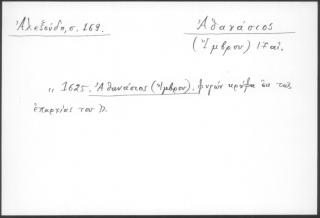 Ἀλεξούδη, σ. 169.
Ἀθανάσιος
(Ἴμβρου) 17 αἰ.
" 1625. Ἀθανάσιος (Ἴμβρου). φυγὼν κρύφα ἐκ τῆς
ἐπαρχίας του